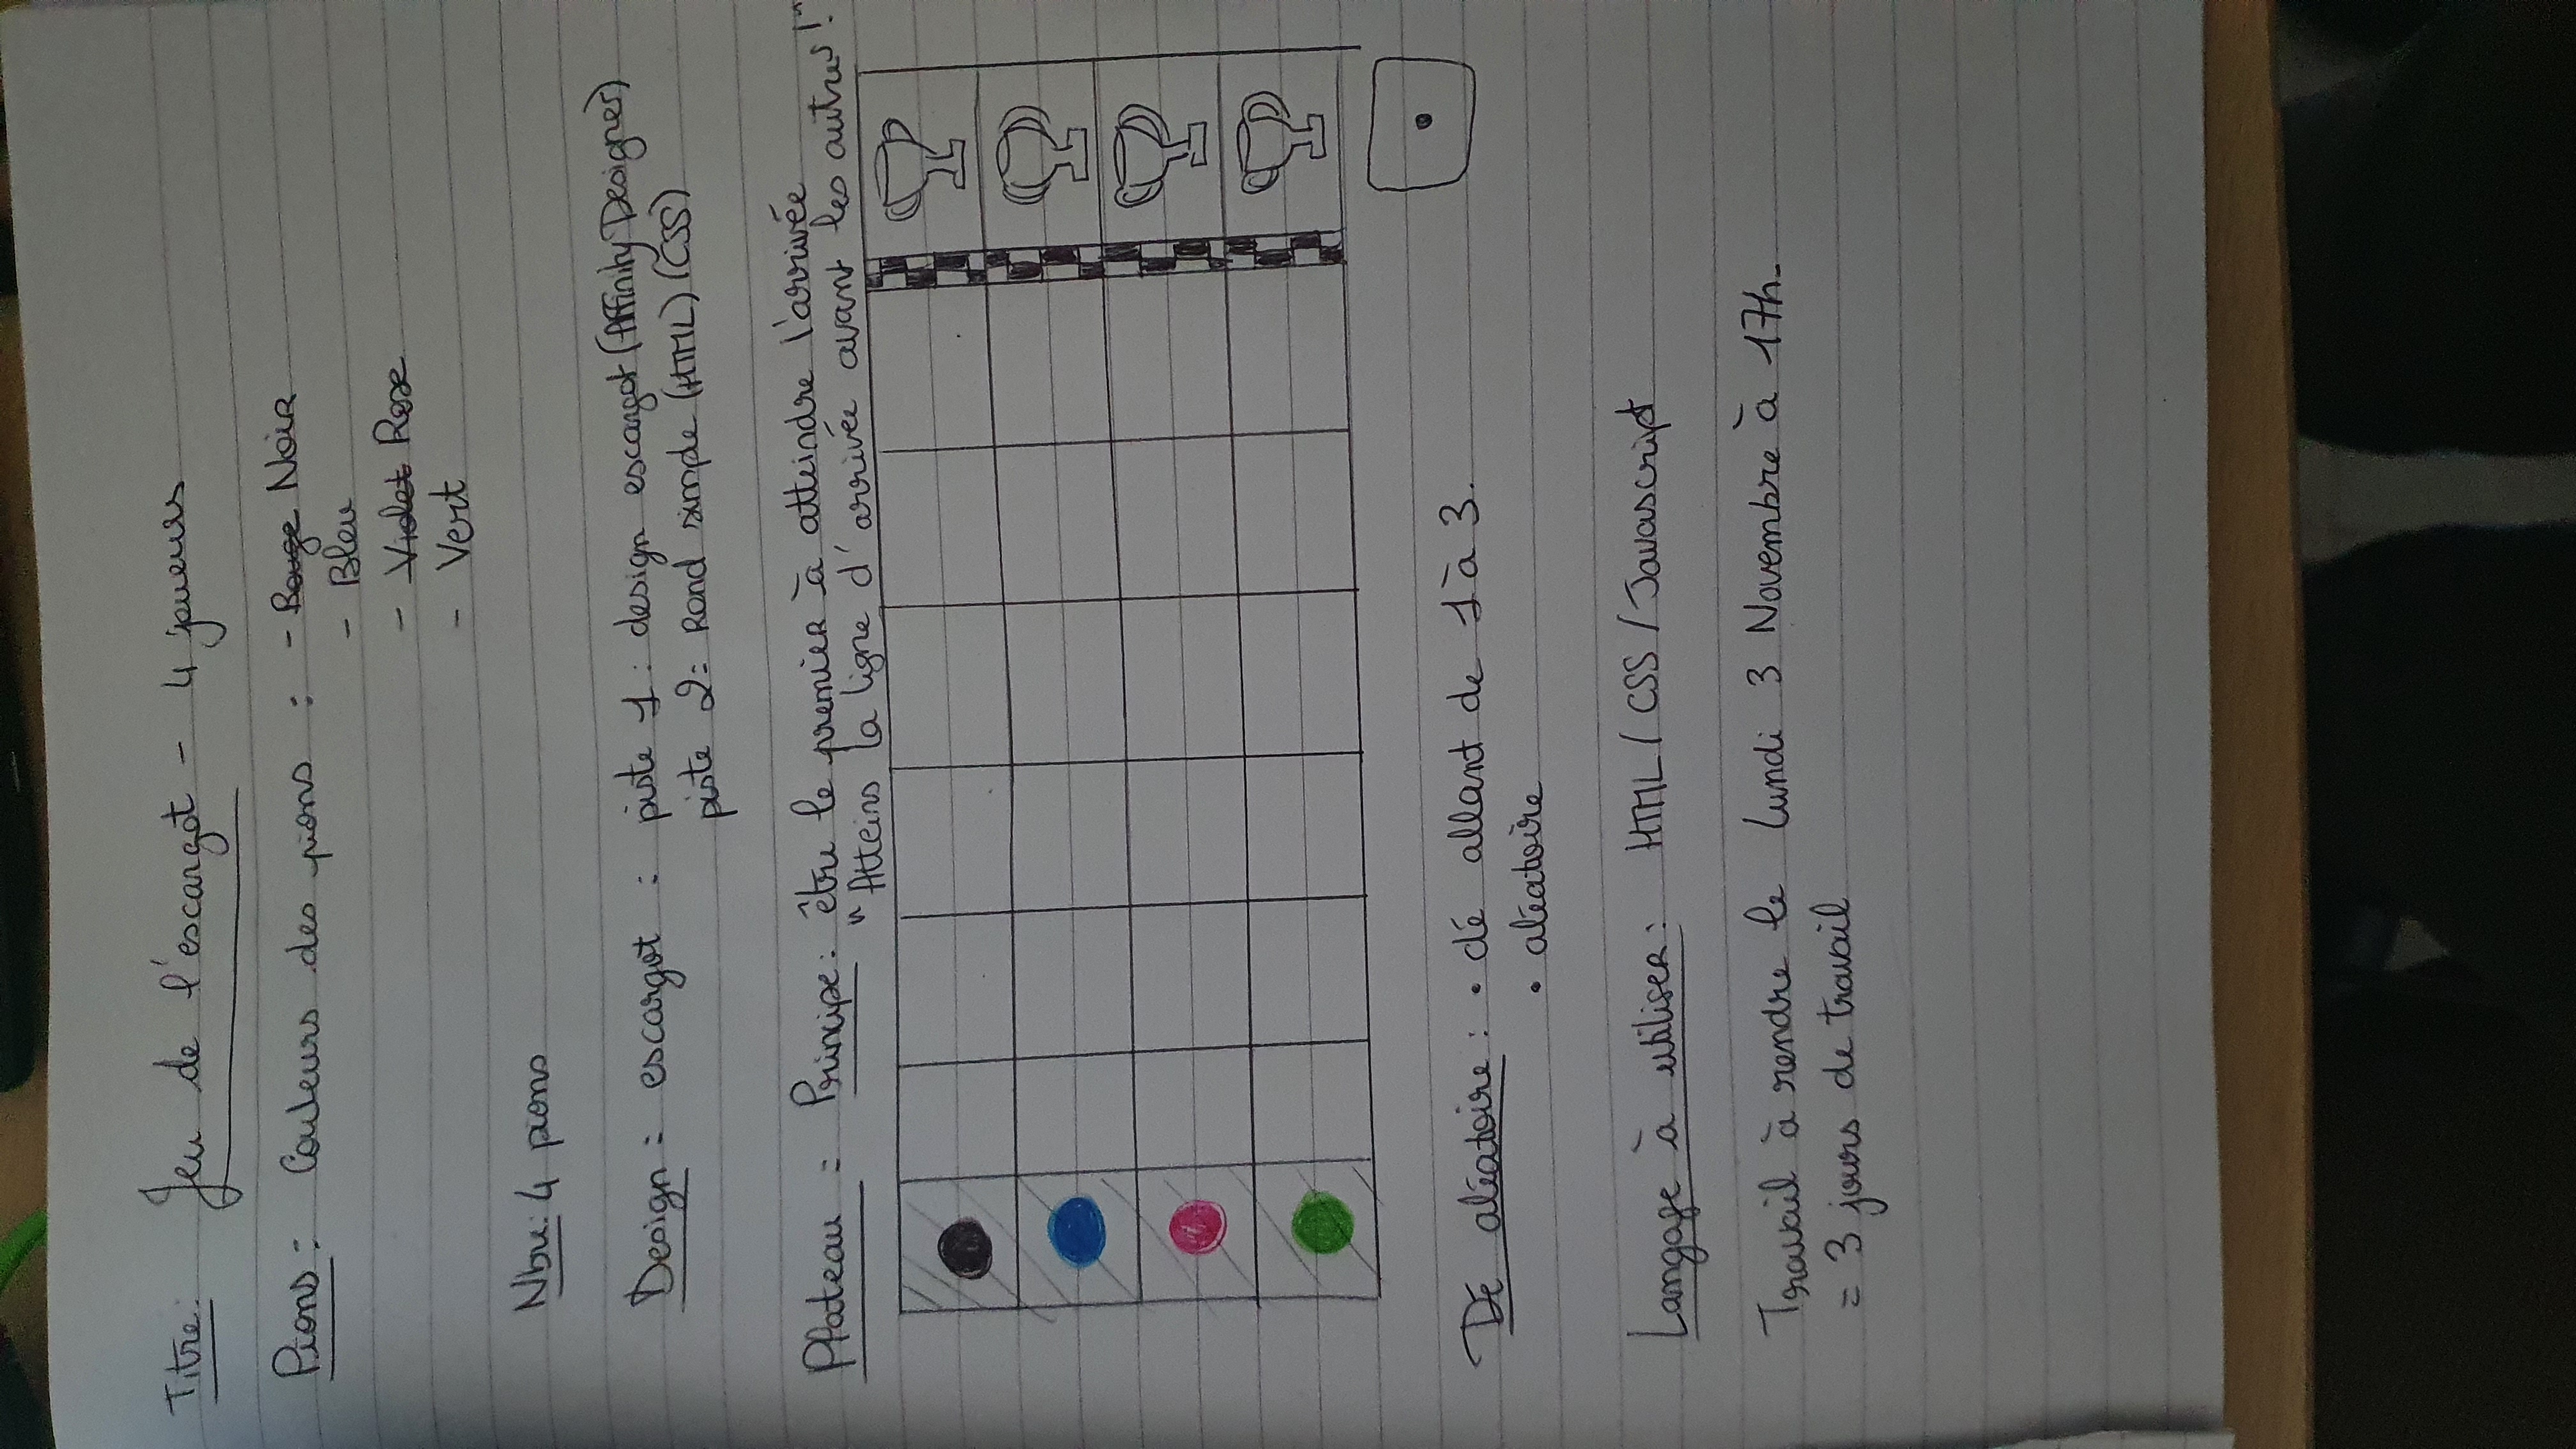 Titre: Jeu de l'escargot - 4 joueurs
Pions: Couleurs des pions : - Rouge Noir
- Bleu
- Violet Rose
- Vert
Nbre: 4 pions
Design: escargot : piste 1: design escargot (Affinity Designer)
piste 2: Rond simple (HTML) (CSS)
Plateau : Principe: être le premier à atteindre l'arrivée
"Atteins la ligne d'arrivée avant les autres!"
Dé aléatoire : • dé allant de 1 à 3.
• aléatoire
Langage à utiliser: HTML / CSS / Javascript
Travail à rendre le lundi 3 Novembre à 17h.
= 3 jours de travail